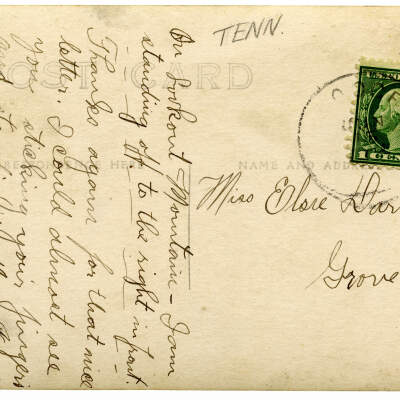 TENN.
POST CARD
CORRESPONDENCE HERE
NAME AND ADDRESS
On Lookout Mountain - I am
standing off to the right in front.
Thanks again for that nice
letter. I could almost see
you sticking your fingers
Miss Elsie
Grove